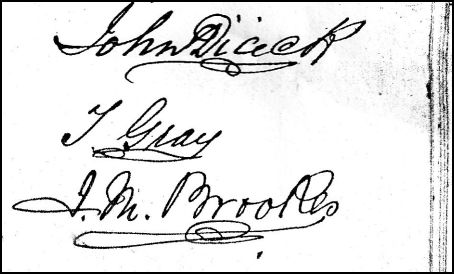 John Diceck
T Gray
J. M. Brookes